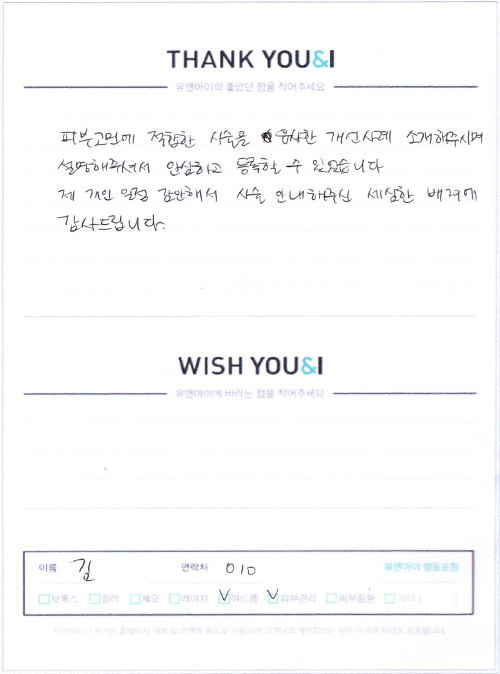 THANK YOU&I
유앤아이의 좋았던 점을 적어주세요
피부고민에 적합한 시술을 유사한 개선사례 소개해주시며
설명해주셔서 안심하고 등록할 수 있었습니다
제 개인 일정 감안해서 시술 안내해주신 세심한 배려에
감사드립니다.
WISH YOU&I
유앤아이에 바라는 점을 적어주세요
이름 김 연락처 010 유앤아이 영등포점
보톡스 필러 제모 레이저 여드름 피부관리 피부질환 기타 (